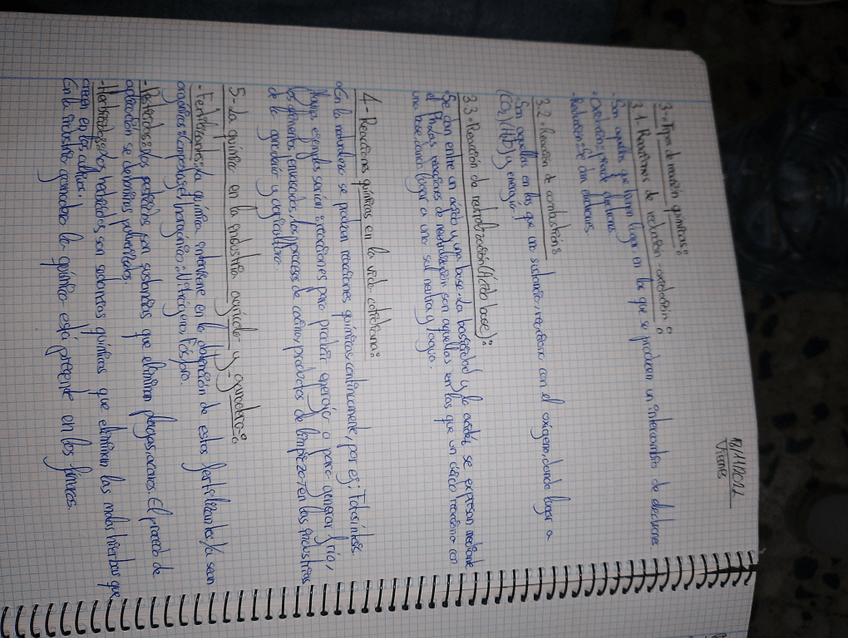 11/11/2022
Viernes
3-Tipos de reacción químicas:
3.1. Reacciones de reducción-oxidación:
-Son aquellas que tienen lugar en las que se producen un intercambio de electrones
-Oxidación: pierde electrones.
-Reducción: Se dan electrones.
3.2-Reacción de combustión:
-Son aquellas en las que una sustancia, reacciona con el oxígeno, dando lugar a
(CO2) (H2O) y energía.
3.3-Reacción de neutralización (Ácido base):
-Se dan entre un ácido y una base. La basicidad y la acidez se expresan mediante
el PH. Las reacciones de neutralización son aquellas en las que un ácido reacciona con
una base dando lugar a una sal neutra y agua.
4-Reacciones químicas en la vida cotidiana:
En la naturaleza se producen reacciones químicas continuamente, por ej: Fotosíntesis.
ejemplos serían: reacciones para producir energía o para generar frío,
los alimentos envasados, los procesos de cocina, productos de limpieza, en las industrias
de la ganadería y agricultura.
5-La química en la industria agrícola y ganadera:
-Fertilizantes: La química interviene en la obtención de estos fertilizantes, ya sean
orgánicos, potásico, nitrógeno, fósforo.
-Pesticidas: Los pesticidas son sustancias que eliminan plagas, ácaros. El proceso de
aplicación se denomina
-Herbicidas: Los herbicidas son sustancias químicas que eliminan las malas hierbas que
crecen en los cultivos.
En la industria ganadera la química está presente en los